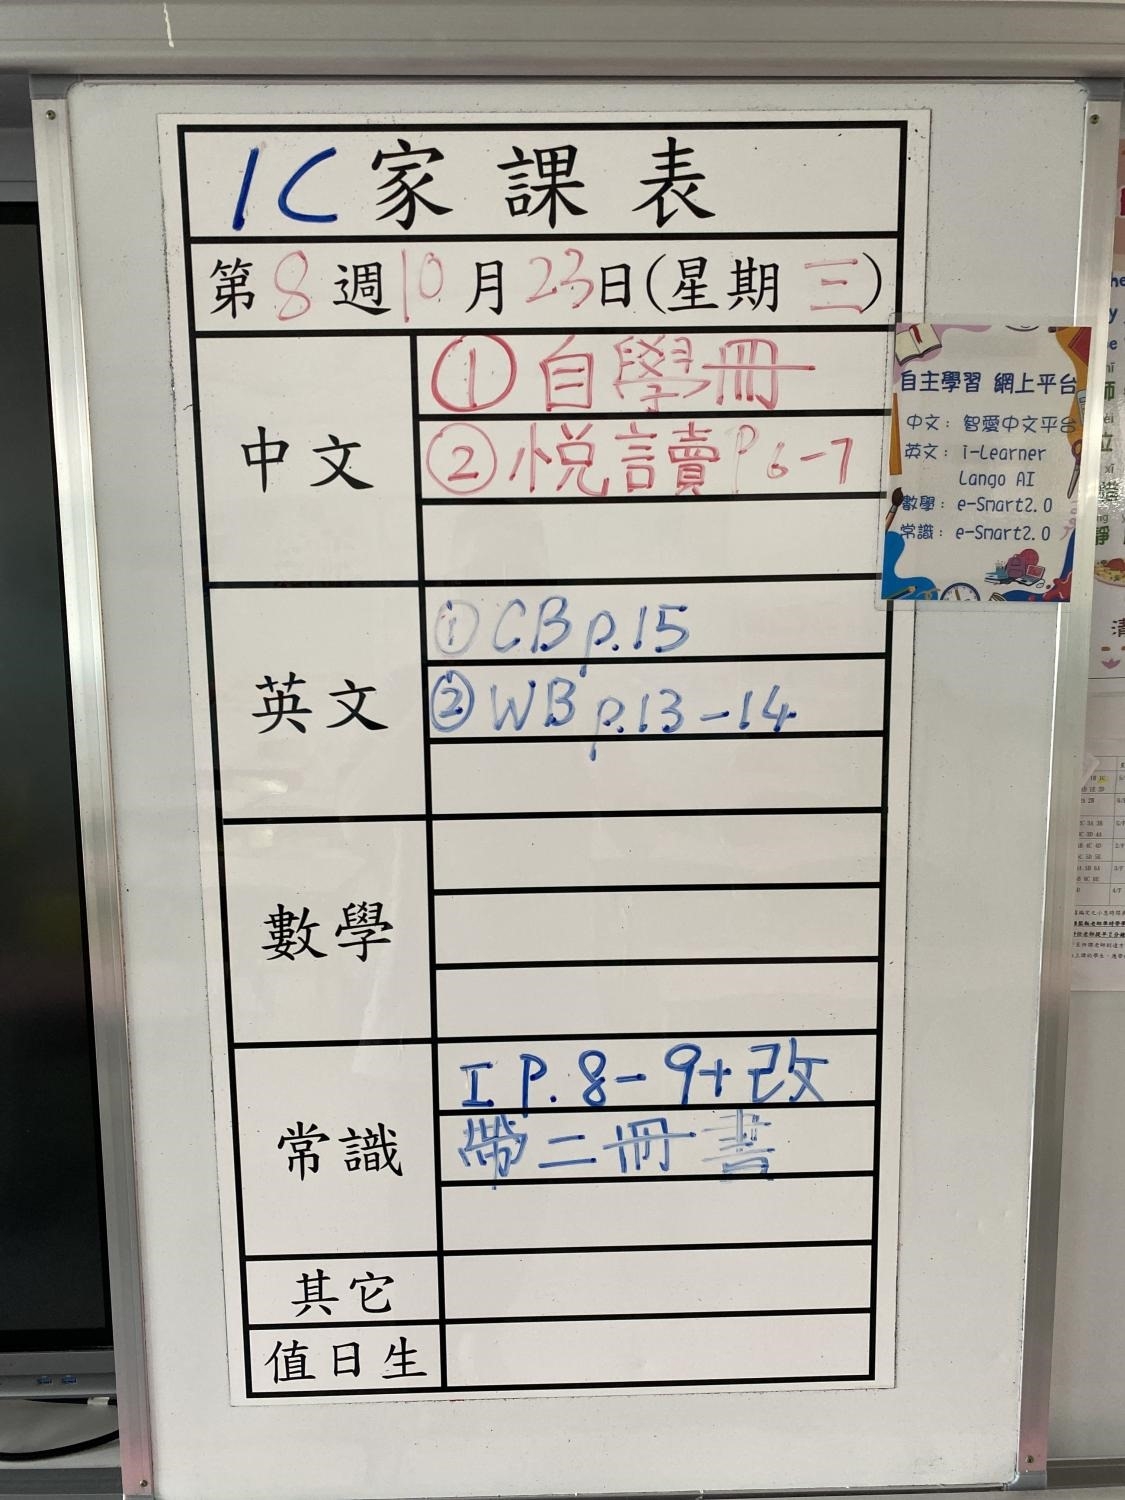 1C家課表
第8週10月23日(星期三)
中文
①自學冊
②悅讀P6-7
英文
①CB p.15
②WB p.13-14
數學
常識
I P.8-9+改
帶二冊書
其它
值日生
自主學習 網上平台
中文：智愛中文平台
英文：i-Learner
Lango AI
數學：e-Smart2.0
常識：e-Smart2.0